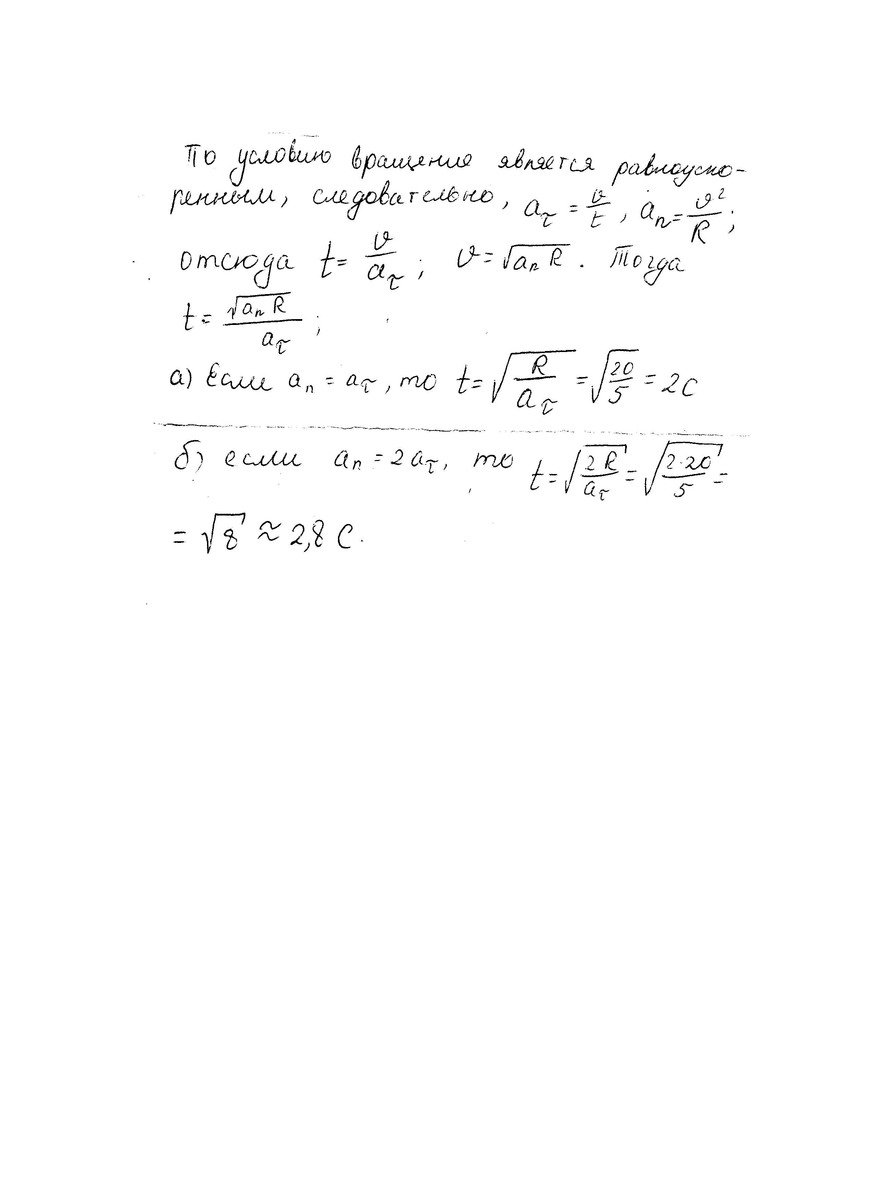 По условию вращение является равноуско-
ренным, следовательно, a_τ = v/t, a_n = v²/R;
отсюда t = v/a_τ; v = √(a_n R). Тогда
t = √(a_n R)/a_τ;
а) Если a_n = a_τ, то t = √(R/a_τ) = √(20/5) = 2 с
б) если a_n = 2a_τ, то t = √(2R/a_τ) = √(2·20/5) =
= √8 ≈ 2,8 с.